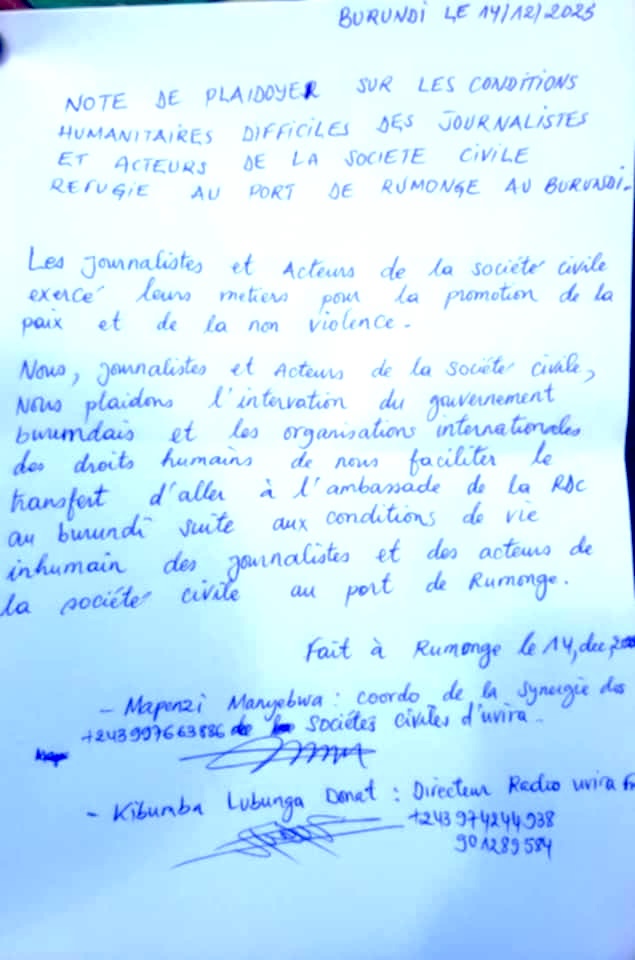 BURUNDI LE 14/12/2025
NOTE DE PLAIDOYER SUR LES CONDITIONS
HUMANITAIRES DIFFICILES DES JOURNALISTES
ET ACTEURS DE LA SOCIETE CIVILE
REFUGIE AU PORT DE RUMONGE AU BURUNDI.
Les journalistes et Acteurs de la société civile
exercé leurs metiers pour la promotion de la
paix et de la non violence.
Nous, journalistes et Acteurs de la société civile,
Nous plaidons l'intervation du gouvernement
burumdais et les organisations internationales
des droits humains de nous faciliter le
transfert d'aller à l'ambassade de la RDC
au burundi suite aux conditions de vie
inhumain des journalistes et des acteurs de
la société civile au port de Rumonge.
Fait à Rumonge le 14, dec,
- Mapenzi Manyebwa : coordo de la synergie des
+243997663886 de la sociétés civiles d'uvira.
- Kibumba Lubunga Donat : Directeur Radio uvira
+243974244938
901289584